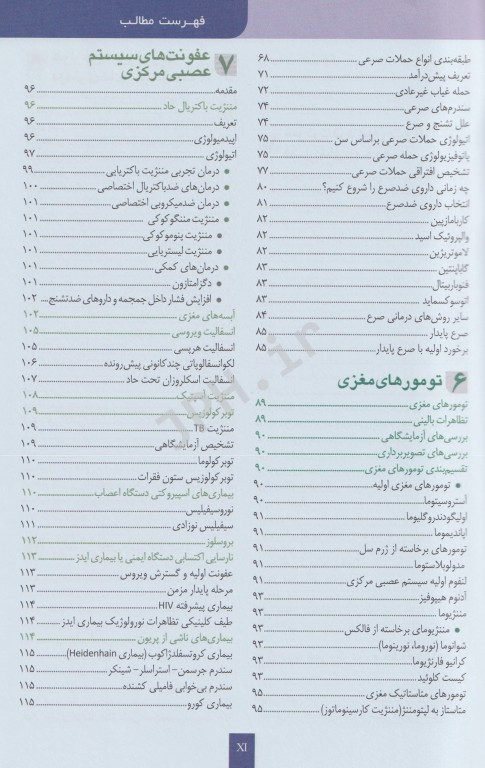 فهرست مطالب
طبقه‌بندی انواع حملات صرعی ........ ۶۸
تعریف پیش‌درآمد ........ ۷۱
حمله غیاب غیرعادی ........ ۷۲
سندرم‌های صرعی ........ ۷۴
علل تشنج و صرع ........ ۷۴
اتیولوژی حملات صرعی براساس سن ........ ۷۵
پاتوفیزیولوژی حمله صرعی ........ ۷۵
تشخیص افتراقی حملات صرعی ........ ۷۷
چه زمانی داروی ضدصرع را شروع کنیم؟ ........ ۸۰
انتخاب داروی ضدصرع ........ ۸۱
کاربامازپین ........ ۸۲
والپروئیک اسید ........ ۸۲
لاموتریژین ........ ۸۲
گاباپنتین ........ ۸۳
فنوباربیتال ........ ۸۳
اتوسوکسماید ........ ۸۳
سایر روش‌های درمانی صرع ........ ۸۴
صرع پایدار ........ ۸۵
برخورد اولیه با صرع پایدار ........ ۸۵
۶ تومورهای مغزی
تومورهای مغزی ........ ۸۹
تظاهرات بالینی ........ ۸۹
بررسی‌های آزمایشگاهی ........ ۹۰
بررسی‌های تصویربرداری ........ ۹۰
تقسیم‌بندی تومورهای مغزی ........ ۹۰
• تومورهای مغزی اولیه ........ ۹۰
آستروسیتوما ........ ۹۰
اولیگودندروگلیوما ........ ۹۱
اپاندیموما ........ ۹۱
تومورهای برخاسته از ژرم سل ........ ۹۱
مدولوبلاستوما ........ ۹۱
لنفوم اولیه سیستم عصبی مرکزی ........ ۹۱
آدنوم هیپوفیز ........ ۹۳
مننژیوما ........ ۹۳
• مننژیومای برخاسته از فالکس ........ ۹۳
شوانوما (نوروما، نورینوما) ........ ۹۳
کرانیو فارنژیوما ........ ۹۳
کیست کلوئید ........ ۹۳
تومورهای متاستاتیک مغزی ........ ۹۵
متاستاز به لپتومننژ (مننژیت کارسینوماتوز) ........ ۹۵
۷ عفونت‌های سیستم
عصبی مرکزی
مقدمه ........ ۹۶
مننژیت باکتریال حاد ........ ۹۶
تعریف ........ ۹۶
اپیدمیولوژی ........ ۹۶
اتیولوژی ........ ۹۷
• درمان تجربی مننژیت باکتریایی ........ ۹۹
• درمان‌های ضدباکتریال اختصاصی ........ ۱۰۰
• درمان ضدمیکروبی اختصاصی ........ ۱۰۱
• مننژیت مننگوکوکی ........ ۱۰۱
• مننژیت پنوموکوکی ........ ۱۰۱
• مننژیت لیستریایی ........ ۱۰۱
• درمان‌های کمکی ........ ۱۰۱
• دگزامتازون ........ ۱۰۱
• افزایش فشار داخل جمجمه و داروهای ضدتشنج ... ۱۰۲
آبسه‌های مغزی ........ ۱۰۲
انسفالیت ویروسی ........ ۱۰۵
انسفالیت هرپسی ........ ۱۰۵
لکوانسفالوپاتی چندکانونی پیش‌رونده ........ ۱۰۶
انسفالیت اسکلروزان تحت حاد ........ ۱۰۷
مننژیت آسپتیک ........ ۱۰۸
توبرکولوزیس ........ ۱۰۹
مننژیت TB ........ ۱۰۹
تشخیص آزمایشگاهی ........ ۱۰۹
توبرکولوما ........ ۱۱۰
توبرکولوزیس ستون فقرات ........ ۱۱۰
بیماری‌های اسپیروکتی دستگاه اعصاب ........ ۱۱۰
نوروسیفیلیس ........ ۱۱۰
سیفیلیس نوزادی ........ ۱۱۱
بروسلوز ........ ۱۱۲
نارسایی اکتسابی دستگاه ایمنی یا بیماری ایدز ........ ۱۱۳
عفونت اولیه و گسترش ویروس ........ ۱۱۳
مرحله پایدار مزمن ........ ۱۱۳
بیماری پیشرفته HIV ........ ۱۱۴
طیف کلینیکی تظاهرات نورولوژیک بیماری ایدز ........ ۱۱۴
بیماری‌های ناشی از پریون ........ ۱۱۴
بیماری کروتسفلدژاکوب (بیماری Heidenhain) ........ ۱۱۵
سندرم جرسمن- استراسلر- شینکر ........ ۱۱۵
سندرم بی‌خوابی فامیلی کشنده ........ ۱۱۵
بیماری کورو ........ ۱۱۵
XI